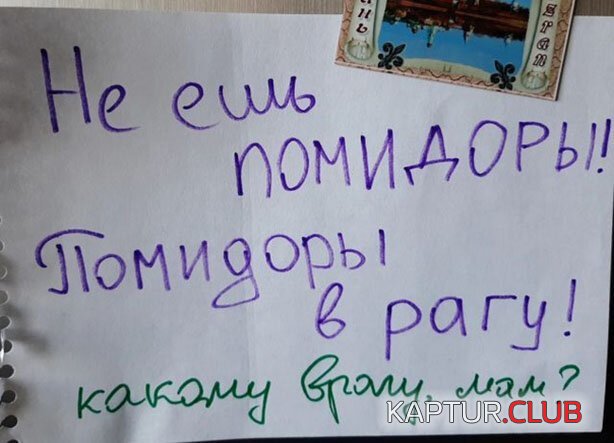 ань
zran
Не ешь
ПОМИДОРЫ!!
Помидоры
в рагу!
какому врагу, мам?
KAPTUR.CLUB